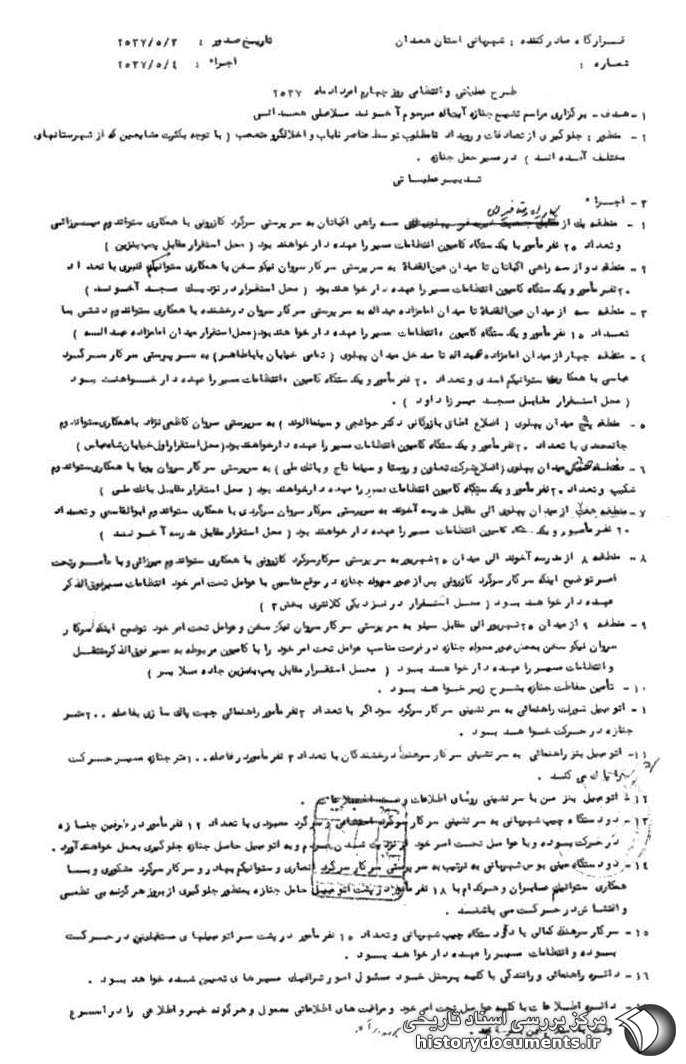 قرارگاه صادرکننده : شهربانی استان همدان
تاریخ صدور : ۲۵۳۷/۵/۳
شماره :
اجراء : ۲۵۳۷/۵/٤
طرح عملیاتی و انتظامی روز چهارم امرداد ماه ۲۵۳۷
۱ - هدف - برگزاری مراسم تشییع جنازه آیت‌اله مرحوم آخوند ملاعلی همدانی
۲ - منظور : جلوگیری از تصادفات و رویداد نامطلوب توسط عناصر ناباب و اخلالگر و متعصب ( با توجه بکثرت مشایعین که از شهرستانهای
مختلف آمده اند ) در مسیر حمل جنازه .
تدبیر عملیاتی
۳ - اجراء
۱ - منطقه یک از سه راهی اکباتان به سرپرستی سرگرد کازرونی با همکاری ستواندوم میرزائی
و تعداد ۲۵ نفر مأمور با یک دستگاه کامیون انتظامات مسیر را عهده دار خواهند بود ( محل استقرار مقابل پمپ بنزین )
۲ - منطقه دو از سه راهی اکباتان تا میدان عین‌القضاة به سرپرستی سرکار سروان نیکو سخن با همکاری ستوانیکم قنبری با تعداد
۲۰ نفر مأمور و یک دستگاه کامیون انتظامات مسیر را عهده دار خواهند بود ( محل استقرار در نزدیک مسجد آخوند )
۳ - منطقه سه از میدان عین‌القضاة تا میدان امامزاده عبداله به سرپرستی سرکار سروان درخشنده با همکاری ستواندوم دشتی با
تعداد ۱۵ نفر مأمور و یک دستگاه کامیون انتظامات مسیر را عهده دار خواهند بود ( محل استقرار میدان امامزاده عبداله )
٤ - منطقه چهار از میدان امامزاده عبداله تا مدخل میدان پهلوی ( تمامی خیابان باباطاهر ) به سرپرستی سرکار سرگرد
عباسی با همکاری ستوانیکم اسدی و تعداد ۲۰ نفر مأمور و یک دستگاه کامیون انتظامات مسیر را عهده دار خواهند بود
( محل استقرار مقابل مسجد میرزا داود ) .
۵ - منطقه پنج میدان پهلوی ( اضلاع اطاق بازرگانی دکتر حوائجی و سینما الوند ) به سرپرستی سروان کاظمی نژاد باهمکاری ستواندوم
با تعداد ۲۰ نفر مأمور و یک دستگاه کامیون انتظامات مسیر را عهده دار خواهند بود ( محل استقرار اول خیابان شاه عباس )
۶ - منطقه شش میدان پهلوی ( اضلاع شرکت تعاون و روستا و سینما تاج و بانک ملی ) به سرپرستی سرکار سروان پویا با همکاری ستواندوم
شکیب و تعداد ۲۰ نفر مأمور و یک دستگاه کامیون انتظامات مسیر را عهده دار خواهند بود ( محل استقرار مقابل بانک ملی )
۷ - منطقه هفت از میدان پهلوی الی مقابل مدرسه آخوند به سرپرستی سرکار سروان سرگردی با همکاری ستواندوم ابوالقاسمی و تعداد
۲۰ نفر مأمور و یک دستگاه کامیون انتظامات مسیر را عهده دار خواهند بود ( محل استقرار مقابل مدرسه آخوند )
۸ - منطقه ۸ از مدرسه آخوند الی میدان ۲۵ شهریور به سرپرستی سرکار سرگرد کازرونی با همکاری ستواندوم میرزائی و با مأمور تحت
امر توضیح اینکه سرکار سرگرد کازرونی پس از عبور محموله جنازه در موقع مناسبی با عوامل تحت امر خود انتظامات مسیر فوق‌الذکر
عهده دار خواهند بود ( محل استقرار در نزدیکی کلانتری بخش ۲ )
۹ - منطقه ۹ از میدان ۲۵ شهریور الی مقابل سیلو به سرپرستی سرکار سروان نیکو سخن و عوامل تحت امر خود توضیح اینکه سرکار
سروان نیکو سخن بمحض عبور محموله جنازه در فرصت مناسب عوامل تحت امر خود را با کامیون مربوطه به مسیر فوق‌الذکر منتقل
و انتظامات مسیر را عهده دار خواهند بود ( محل استقرار مقابل پمپ بنزین جاده ملایر )
۱۰ - تأمین حفاظت جنازه بشرح زیر خواهد بود .
۱ - اتومبیل شورلت راهنمائی به سرنشینی سرکار سرگرد سوداگر با تعداد ۲ نفر مأمور راهنمائی جهت پاک سازی بفاصله ۲۰۰ متر
جنازه در حرکت خواهد بود .
۱۱ - اتومبیل بنز راهنمائی به سرنشینی سرکار سرهنگ درخشندگان با تعداد ۲ نفر مأمور در فاصله ۱۰۰ متر جنازه مسیر حرکت
می کند .
۱۲ - اتومبیل بنز من با سرنشینی روسای اطلاعات و
۱۳ - دو دستگاه جیپ شهربانی به سرنشینی سرکار سرگرد و سرگرد معبودی با تعداد ۱۲ نفر مأمور در طرفین جنازه
در حرکت بوده و با عوامل تحت امر خود از نزدیک شدن مردم و به اتومبیل حامل جنازه جلوگیری بعمل خواهند آورد .
۱٤ - دو دستگاه مینی بوس شهربانی به ترتیب به سرپرستی سرکار سرگرد انصاری و ستوانیکم بهادر و سرکار سرگرد مشکوری و با
همکاری ستوانیکم صابران و هرکدام با ۱۸ نفر مأمور در پشت اتومبیل حامل جنازه بمنظور جلوگیری از بروز هرگونه بی نظمی
و اغتشاش در حرکت می باشند .
۱۵ - سرکار سرهنگ کمالی با دو دستگاه جیپ شهربانی و تعداد ۱۵ نفر مأمور در پشت سر اتومبیلهای مستقبلین در حرکت
بوده و انتظامات مسیر را عهده دار خواهد بود .
۱۶ - دائره راهنمائی و رانندگی با کلیه پرسنل خود مسئول امور ترافیک مسیرهای تعیین شده خواهد بود .
دائره اطلاعات با کلیه عوامل تحت امر خود و مراقبت های اطلاعاتی معمول و هرگونه خبر و اطلاعی را در اسرع
مرکز بررسی اسناد تاریخی
historydocuments.ir